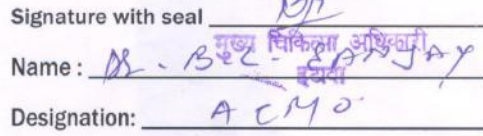 Signature with seal
मुख्य चिकित्सा अधिकारी
Name : Dr. B. L. SANJAY
इटावा
Designation: ACMO